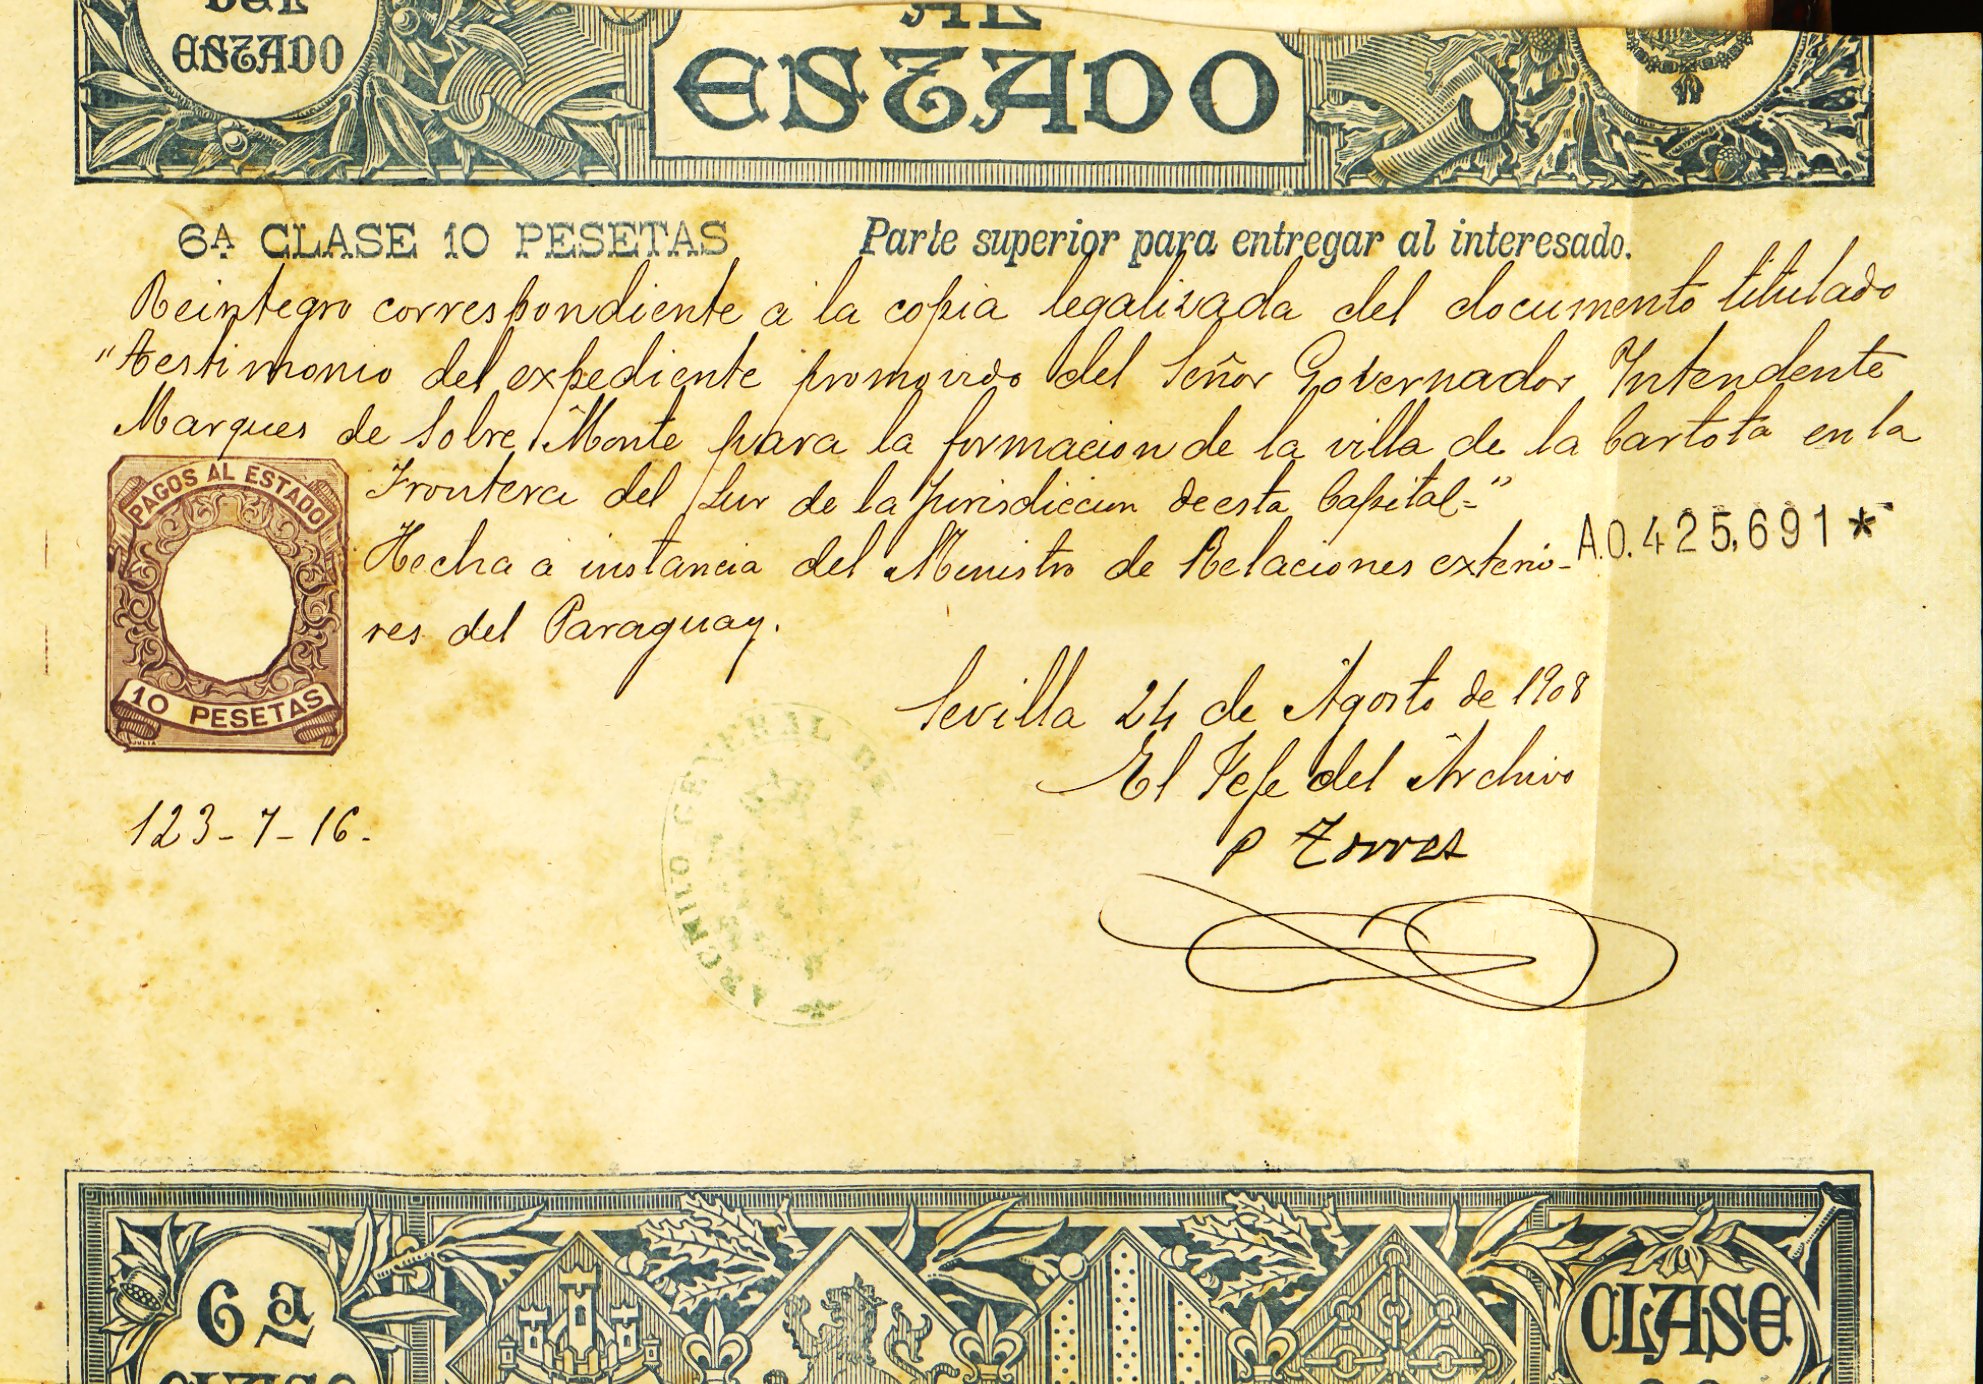 DEL
ESTADO
AL
ESTADO
6A CLASE 10 PESETAS
Parte superior para entregar al interesado.
Reintegro correspondiente a la copia legalizada del documento titulado
"Testimonio del expediente promovido del Señor Governador Intendente
Marques de Sobre Monte para la formacion de la villa de la Carlota en la
Frontera del Sur de la jurisdiccion de esta Capital="
Hecha a instancia del Ministro de Relaciones exterio-
res del Paraguay.
A.0.425,691*
PAGOS AL ESTADO
10 PESETAS
JULIA
Sevilla 24 de Agosto de 1908
El Jefe del Archivo
P Torres
123-7-16.
ARCHIVO GENERAL DE
6a
CLASE
CLASE